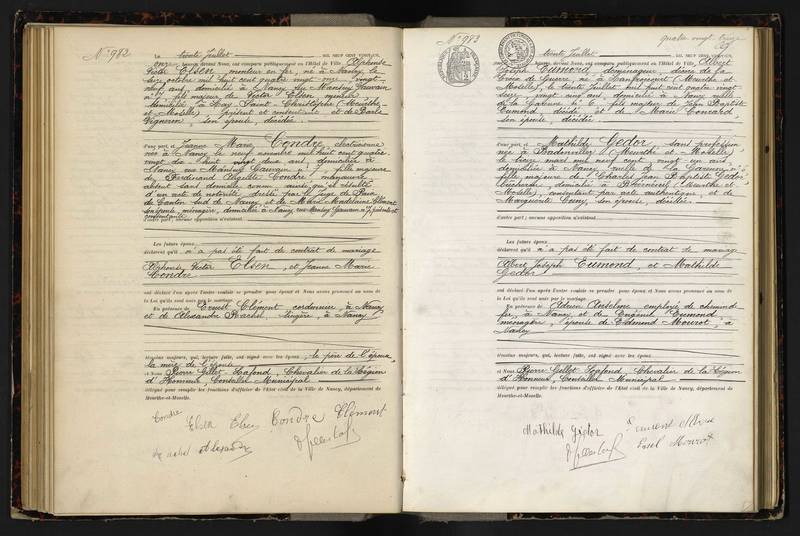 N° 982
Le trente Juillet mil neuf cent vingt-un,
onze heures devant Nous, ont comparu publiquement en l'Hôtel de Ville, Alphonse
Victor Elsen, monteur en fer, né à Nancy, le
seize octobre mil huit cent quatre vingt onze, vingt-
neuf ans, domicilié à Nancy, rue Mainbey Gauvain
n° 7, fils majeur de Victor Elsen, menuisier
domicilié à Saint-Christophe (Meurthe
et Moselle), présent et consentant et de Barbe
Vigneron, son épouse, décédée.
d'une part, et Jeanne Marie Condre,
née à Nancy, le neuf novembre mil huit cent quatre
vingt dix huit, vingt deux ans, domiciliée à
Nancy, rue Mainbey Gauvain n° 7, fille majeure
de Ferdinand Condre, manœuvre,
absent sans domicile connu ainsi qu'il résulte
d'un acte de notoriété dressé par le Juge de Paix
du Canton sud de Nancy, et de Marie Madeleine Clément
son épouse, ménagère, domiciliée à Nancy, rue Mainbey Gauvain n° 7, présente et
consentante
d'autre part; aucune opposition n'existant.
Les futurs époux
déclarent qu'il n'a pas été fait de contrat de mariage
Alphonse Victor Elsen, et Jeanne Marie
Condre
ont déclaré l'un après l'autre vouloir se prendre pour époux et Nous avons prononcé au nom de
la Loi qu'ils sont unis par le mariage.
En présence de Ernest Clément cordonnier, à Nancy
et de Alexandre Rachel, lingère, à Nancy
témoins majeurs, qui, lecture faite, ont signé avec les époux, le père de l'époux
la mère de l'épouse
et Nous Pierre Gillet-Lafond, Chevalier de la Légion
d'Honneur, Conseiller Municipal
délégué pour remplir les fonctions d'officier de l'Etat civil de la Ville de Nancy, département de
Meurthe-et-Moselle.
Condre Elsen Elsen Condre Clement
Rachel Alexandre
N° 983
quatre vingt treize
93
Le trente Juillet mil neuf cent vingt-un,
heures devant Nous, ont comparu publiquement en l'Hôtel de Ville, Albert
Joseph Eumond, déménageur, décoré de la
Croix de Guerre, né à (Meurthe et
Moselle), le trente Juillet mil huit cent quatre vingt-
vingt ans, domicilié à Nancy, ruelle
de la Garenne n° 6, fils majeur de Jean Baptiste
Eumond, décédé, et de Marie
son épouse, décédée
d'une part, et Mathilde Gedor, sans profession
née à Badonviller (Meurthe et Moselle),
le treize mars mil neuf cent vingt un ans
domiciliée à Nancy, ruelle de la Garenne n° 6
fille majeure de Charles Jean Baptiste Gedor
bûcheron, domicilié à (Meurthe et
Moselle), consentant par acte authentique, et de
Marguerite son épouse, décédée
d'autre part; aucune opposition n'existant.
Les futurs époux
déclarent qu'il n'a pas été fait de contrat de mariage
Albert Joseph Eumond, et Mathilde
Gedor
ont déclaré l'un après l'autre vouloir se prendre pour époux et Nous avons prononcé au nom de
la Loi qu'ils sont unis par le mariage.
En présence de Anselme employé de chemin de
fer, à Nancy, et de Eugénie Eumond
ménagère, épouse de Edmond Mourot, à
Nancy
témoins majeurs, qui, lecture faite, ont signé avec les époux
et Nous Pierre Gillet Lafond, Chevalier de la Légion
d'Honneur, Conseiller Municipal
délégué pour remplir les fonctions d'officier de l'Etat civil de la Ville de Nancy, département de
Meurthe-et-Moselle.
Mathilde Gedor Eumond Albert
Mourot